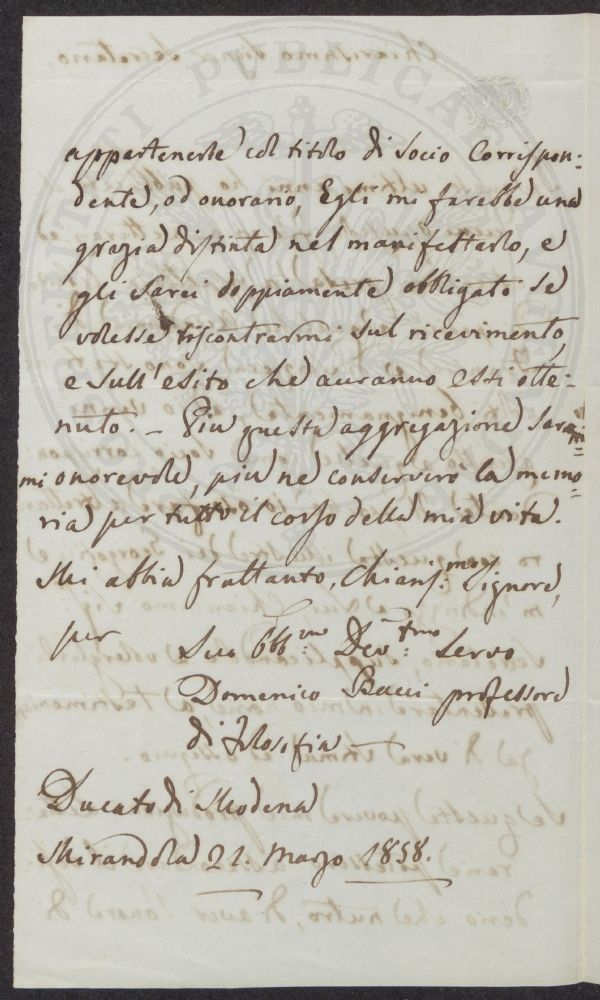 appartenerle col titolo di Socio Corrispon:
dente, od onorario, Egli mi farebbe una
grazia distinta nel manifestarlo, e
gli sarei doppiamente obbligato se
volesse riscontrarmi sul ricevimento,
e sull'esito che avranno essi otte:
nuto. – Più questa aggregazione sarà
mi onorevole, più ne conserverò la memo=
ria per tutto il corso della mia vita.
Mi abbia frattanto, Chiaris:mo Signore,
per Suo Obb:mo Dev:tmo Servo
Domenico Bacci professore
di filosofia –
Ducato di Modena
Mirandola 21. Marzo 1858.